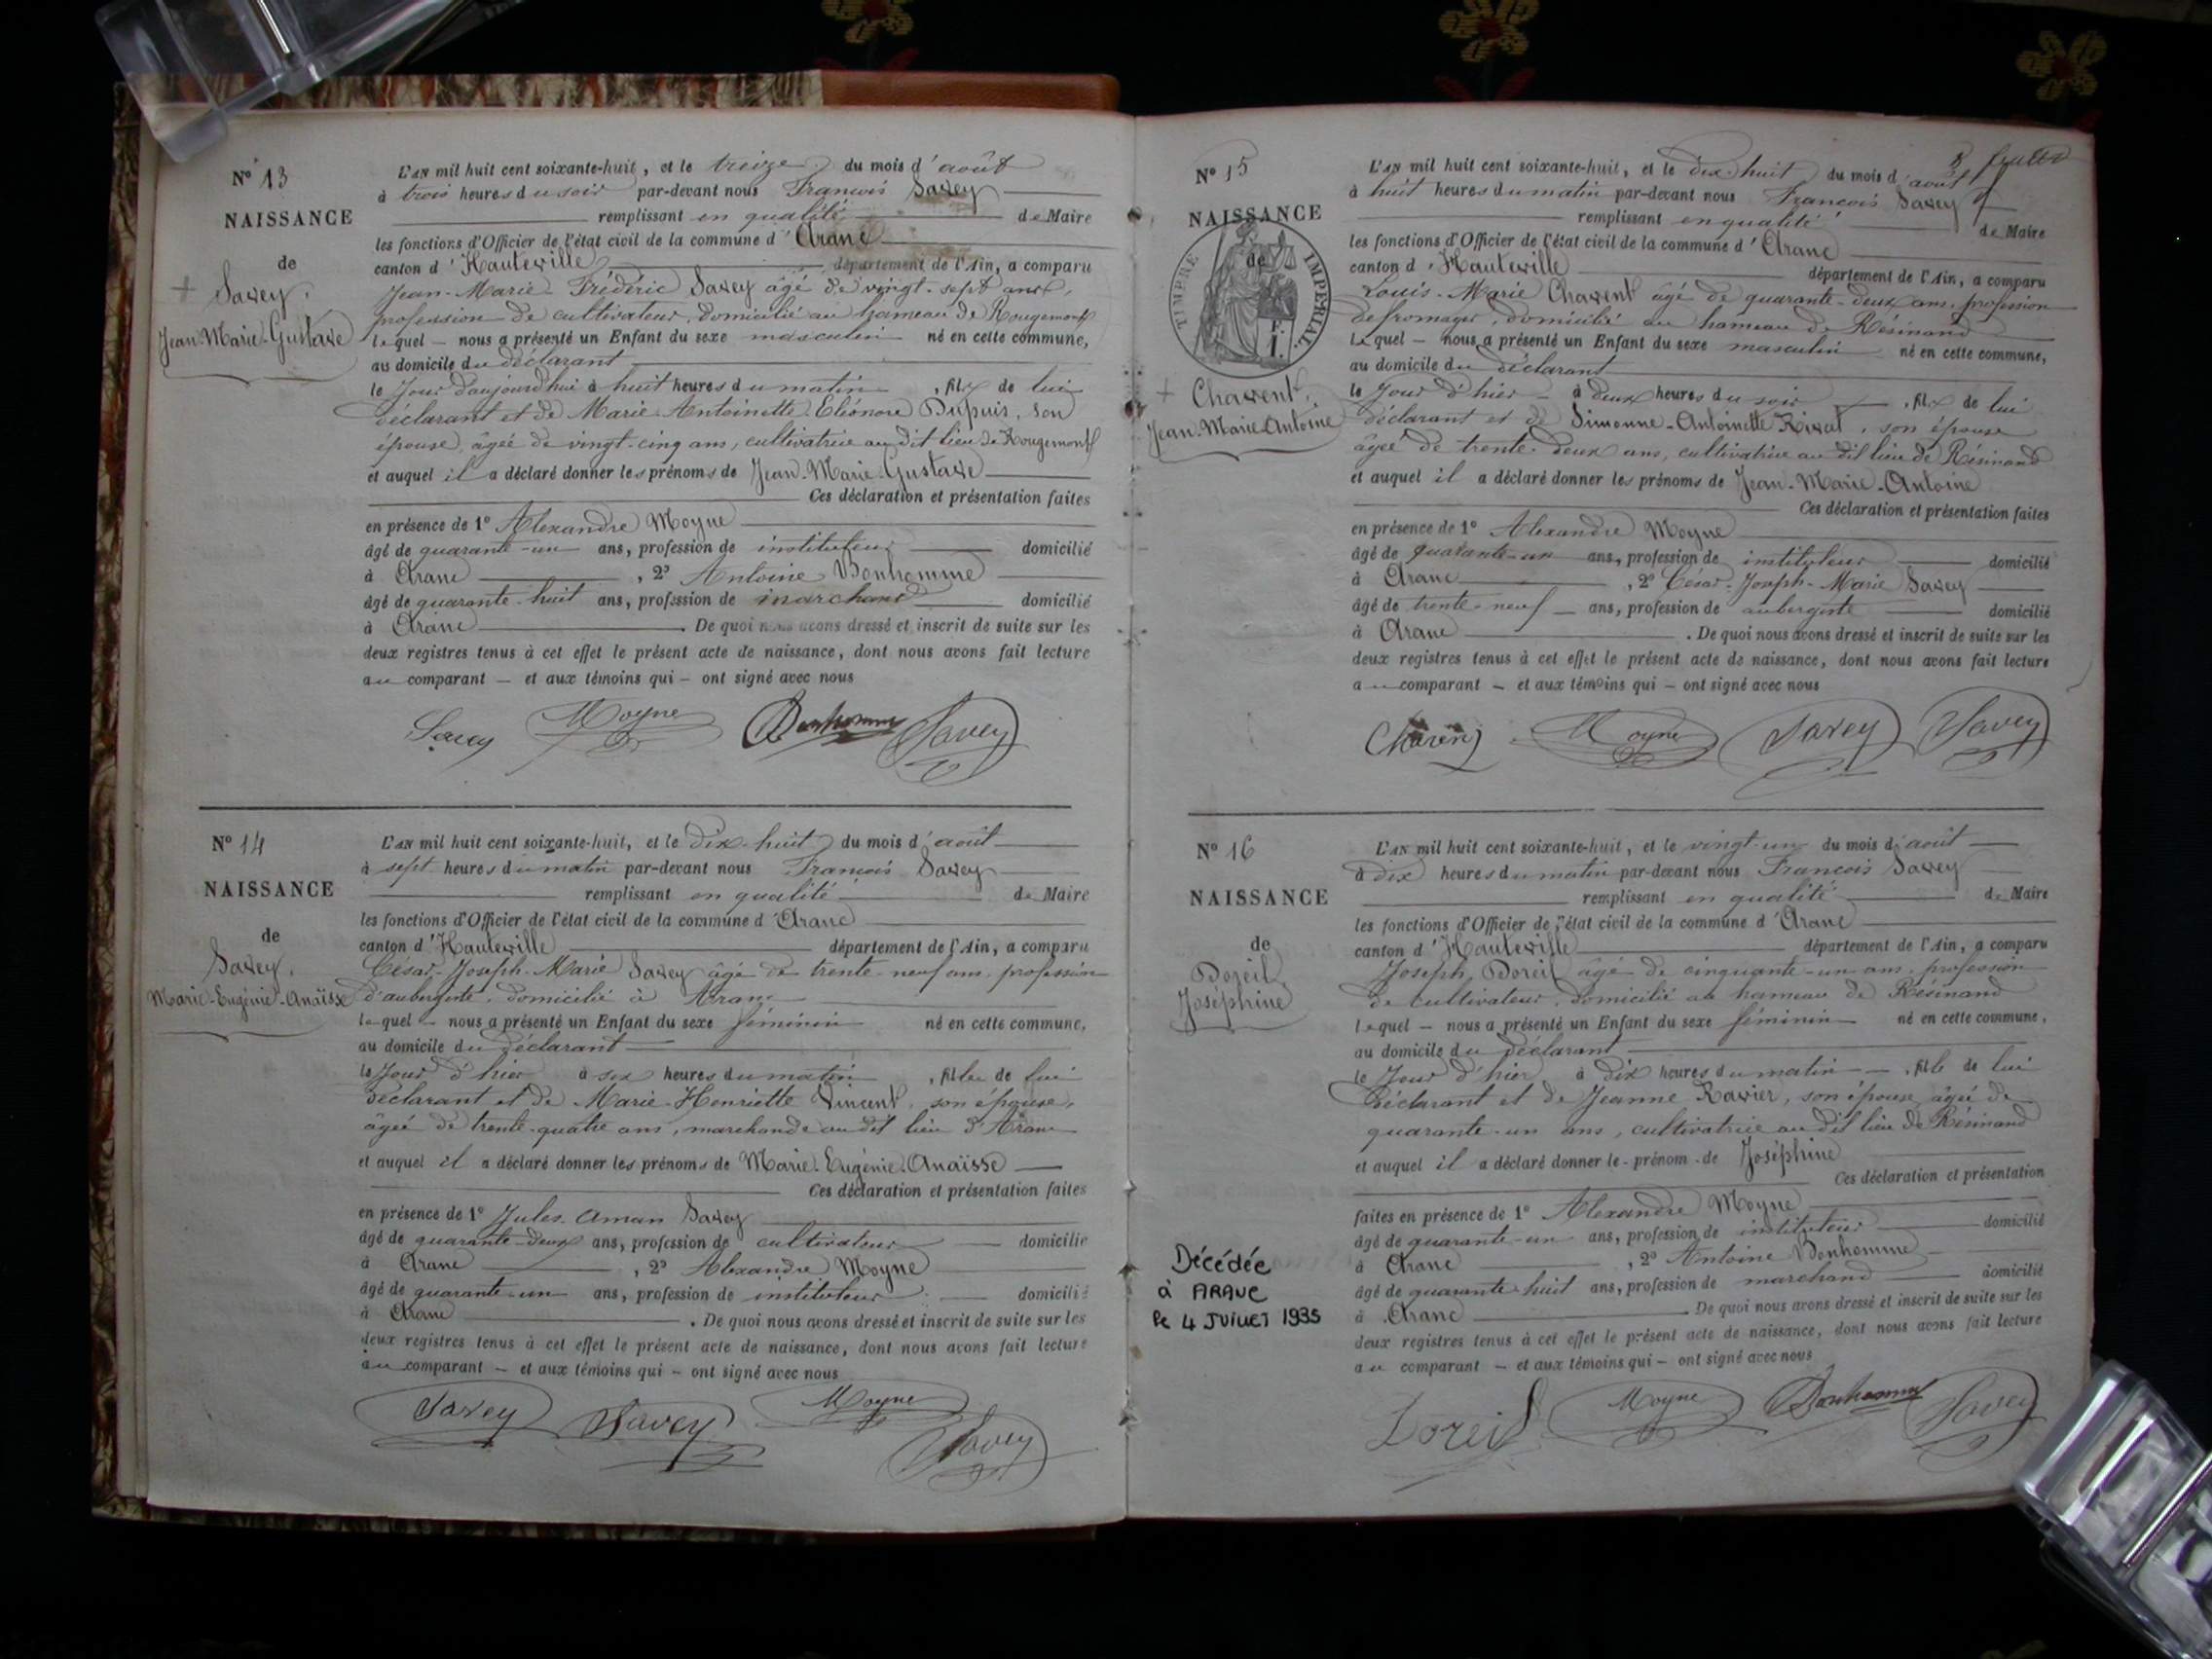 N° 13
NAISSANCE
de
Savey,
Jean-Marie-Gustave
L'AN mil huit cent soixante-huit, et le treize du mois d'août
à trois heures du soir par-devant nous François Savey
remplissant en qualité de Maire
les fonctions d'Officier de l'état civil de la commune d'Aranc
canton d'Hauteville département de l'Ain, a comparu
Jean-Marie-Frédéric Savey âgé de vingt-sept ans,
profession de cultivateur, domicilié au hameau de Rougemont
lequel nous a présenté un Enfant du sexe masculin né en cette commune,
au domicile du déclarant
le Jour d'aujourd'hui à huit heures du matin, fils de lui
déclarant et de Marie-Antoinette-Eléonore Dupuis, son
épouse, âgée de vingt-cinq ans, cultivatrice au dit lieu de Rougemont
et auquel il a déclaré donner les prénoms de Jean-Marie-Gustave
Ces déclaration et présentation faites
en présence de 1° Alexandre Moyne
âgé de quarante-un ans, profession de instituteur domicilié
à Aranc, 2° Antoine Bonhomme
âgé de quarante-huit ans, profession de marchand domicilié
à Aranc. De quoi nous avons dressé et inscrit de suite sur les
deux registres tenus à cet effet le présent acte de naissance, dont nous avons fait lecture
au comparant – et aux témoins qui – ont signé avec nous
Savey Moyne Bonhomme Savey
N° 14
NAISSANCE
de
Savey,
Marie-Eugénie-Anaïsse
L'AN mil huit cent soixante-huit, et le dix-huit du mois d'août
à sept heures du matin par-devant nous François Savey
remplissant en qualité de Maire
les fonctions d'Officier de l'état civil de la commune d'Aranc
canton d'Hauteville département de l'Ain, a comparu
César-Joseph-Marie Savey âgé de trente-neuf ans, profession
d'aubergiste, domicilié à Aranc
lequel – nous a présenté un Enfant du sexe féminin né en cette commune,
au domicile du déclarant
le Jour d'hier à six heures du matin, fille de lui
déclarant et de Marie-Henriette Vincent, son épouse,
âgée de trente-quatre ans, marchande au dit lieu d'Aranc
et auquel il a déclaré donner les prénoms de Marie-Eugénie-Anaïsse
Ces déclaration et présentation faites
en présence de 1° Jules-Aman Savey
âgé de quarante-deux ans, profession de cultivateur domicilié
à Aranc, 2° Alexandre Moyne
âgé de quarante-un ans, profession de instituteur domicilié
à Aranc. De quoi nous avons dressé et inscrit de suite sur les
deux registres tenus à cet effet le présent acte de naissance, dont nous avons fait lecture
au comparant – et aux témoins qui – ont signé avec nous
Savey Savey Moyne
Savey
8
N° 15
NAISSANCE
de
TIMBRE IMPERIAL
1 F.
Charvent,
Jean-Marie-Antoine
L'AN mil huit cent soixante-huit, et le dix-huit du mois d'août
à huit heures du matin par-devant nous François Savey
remplissant en qualité de Maire
les fonctions d'Officier de l'état civil de la commune d'Aranc
canton d'Hauteville département de l'Ain, a comparu
Louis-Marie Charvent âgé de quarante-deux ans, profession
de fromager, domicilié au hameau de Résinand
lequel – nous a présenté un Enfant du sexe masculin né en cette commune,
au domicile du déclarant
le Jour d'hier à deux heures du soir, fils de lui
déclarant et de Simonne-Antoinette, son épouse
âgée de trente-deux ans, cultivatrice au dit lieu de Résinand
et auquel il a déclaré donner les prénoms de Jean-Marie-Antoine
Ces déclaration et présentation faites
en présence de 1° Alexandre Moyne
âgé de quarante-un ans, profession de instituteur domicilié
à Aranc, 2° César-Joseph-Marie Savey
âgé de trente-neuf – ans, profession de aubergiste domicilié
à Aranc. De quoi nous avons dressé et inscrit de suite sur les
deux registres tenus à cet effet le présent acte de naissance, dont nous avons fait lecture
au comparant – et aux témoins qui – ont signé avec nous
Moyne Savey Savey
N° 16
NAISSANCE
de
Doreil,
Joséphine
Décédée
à ARANC
le 4 JUILLET 1935
L'AN mil huit cent soixante-huit, et le vingt-un du mois d'août
à dix heures du matin par-devant nous François Savey
remplissant en qualité de Maire
les fonctions d'Officier de l'état civil de la commune d'Aranc
canton d'Hauteville département de l'Ain, a comparu
Joseph Doreil âgé de cinquante-un ans, profession
de cultivateur, domicilié au hameau de Résinand
lequel – nous a présenté un Enfant du sexe féminin né en cette commune,
au domicile du déclarant
le Jour d'hier à dix heures du matin, fille de lui
déclarant et de Jeanne Ravier, son épouse, âgée de
quarante-un ans, cultivatrice au dit lieu de Résinand
et auquel il a déclaré donner le prénom de Joséphine
Ces déclaration et présentation
faites en présence de 1° Alexandre Moyne
âgé de quarante-un ans, profession de instituteur domicilié
à Aranc, 2° Antoine Bonhomme
âgé de quarante-huit ans, profession de marchand domicilié
à Aranc. De quoi nous avons dressé et inscrit de suite sur les
deux registres tenus à cet effet le présent acte de naissance, dont nous avons fait lecture
au comparant – et aux témoins qui – ont signé avec nous
Doreil Moyne Bonhomme Savey